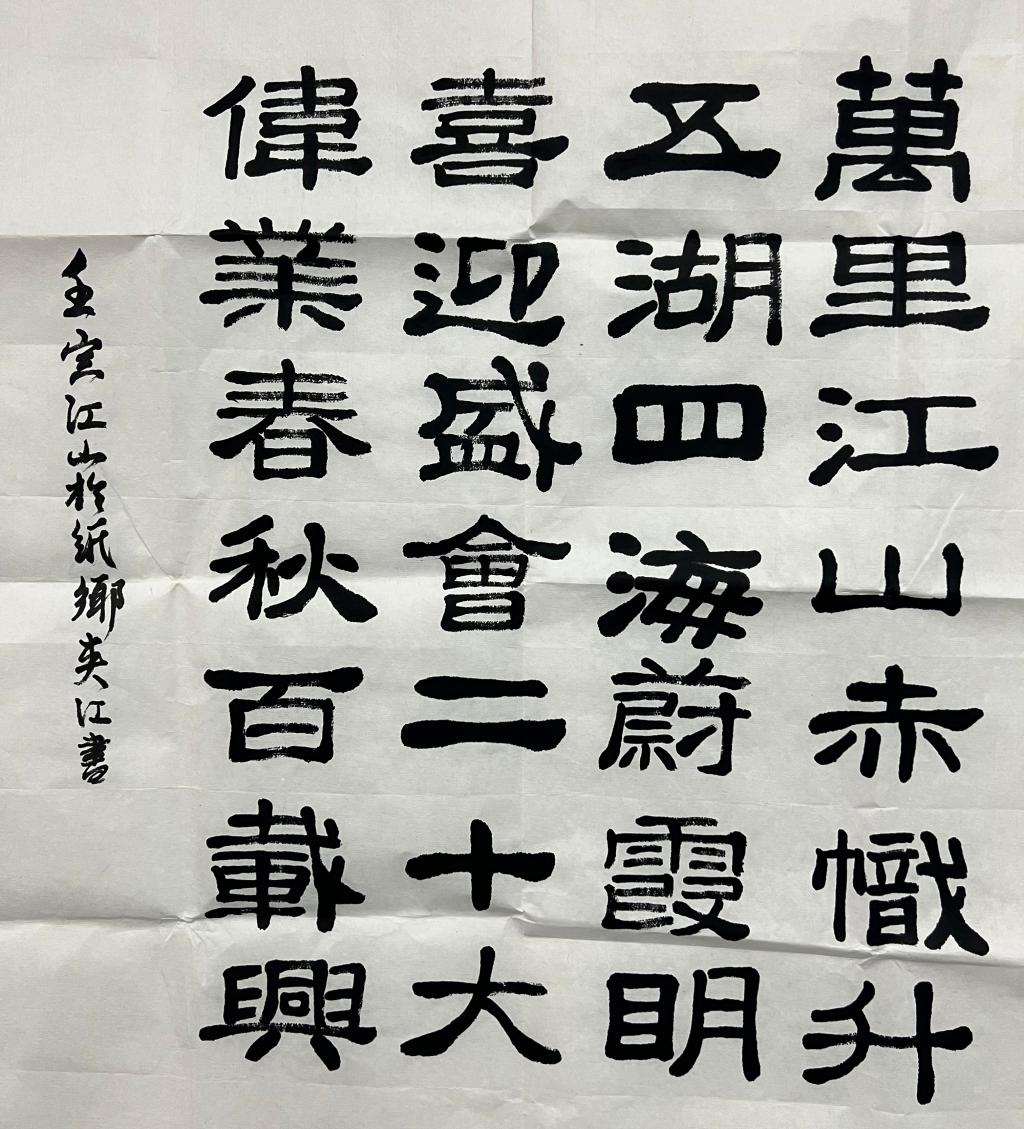 萬里江山赤幟升
五湖四海蔚霞明
喜迎盛會二十大
偉業春秋百載興
壬寅江山於紙鄉夾江書